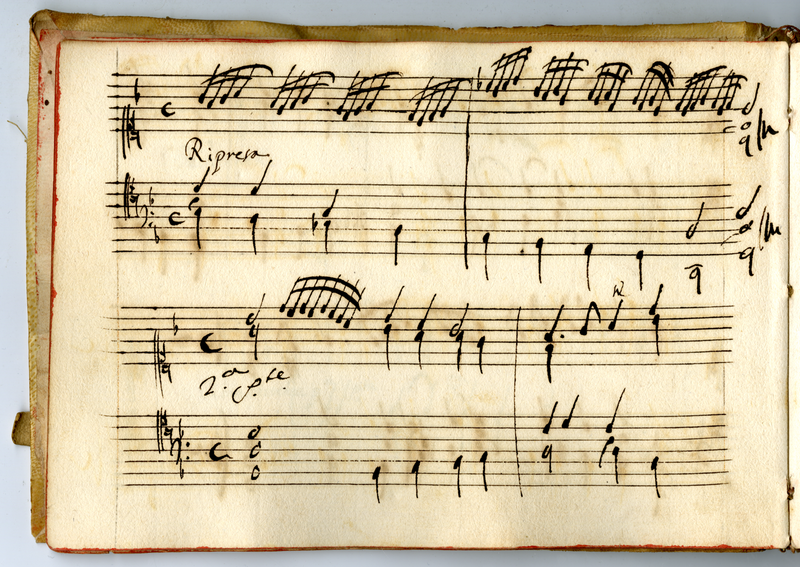 Ripresa
2.a P.te